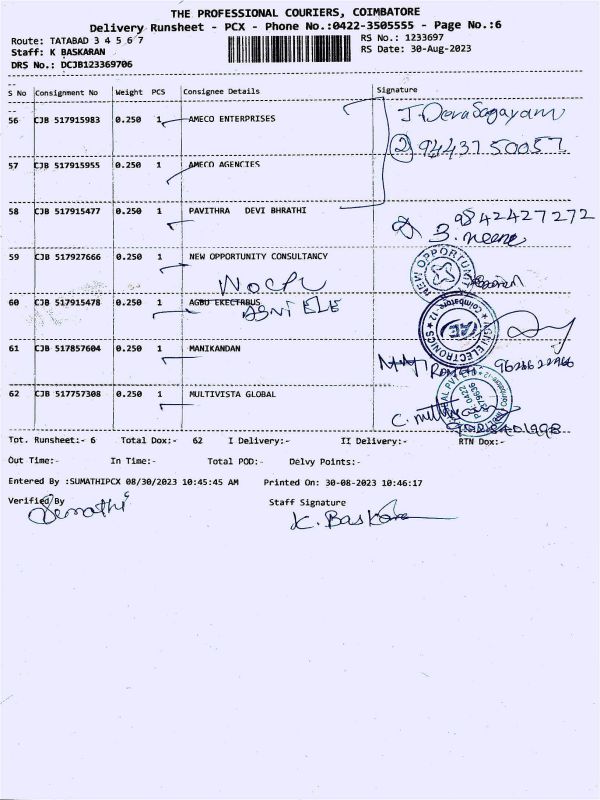 THE PROFESSIONAL COURIERS, COIMBATORE
Delivery Runsheet - PCX - Phone No.:0422-3505555 - Page No.:6
Route: TATABAD 3 4 5 6 7
RS No.: 1233697
Staff: K BASKARAN
RS Date: 30-Aug-2023
DRS No.: DCJB123369706
S No Consignment No Weight PCS Consignee Details Signature
56 CJB 517915983 0.250 1 AMECO ENTERPRISES J. Deva Sagayam
② 9443750057
57 CJB 517915955 0.250 1 AMECO AGENCIES
58 CJB 517915477 0.250 1 PAVITHRA DEVI BHRATHI 9842427272
59 CJB 517927666 0.250 1 NEW OPPORTUNITY CONSULTANCY NEW OPPORTUNI
60 CJB 517915478 0.250 1 AGBU EKECTRBUS
AGNI ELE
AGNI ELECTRONICS ★ Coimbatore-12 ★
61 CJB 517857604 0.250 1 MANIKANDAN
62 CJB 517757308 0.250 1 MULTIVISTA GLOBAL
Tot. Runsheet:- 6 Total Dox:- 62 I Delivery:- II Delivery:- RTN Dox:-
Out Time:- In Time:- Total POD:- Delvy Points:-
Entered By :SUMATHIPCX 08/30/2023 10:45:45 AM Printed On: 30-08-2023 10:46:17
Verified By Staff Signature
Sumathi K. Baskaran